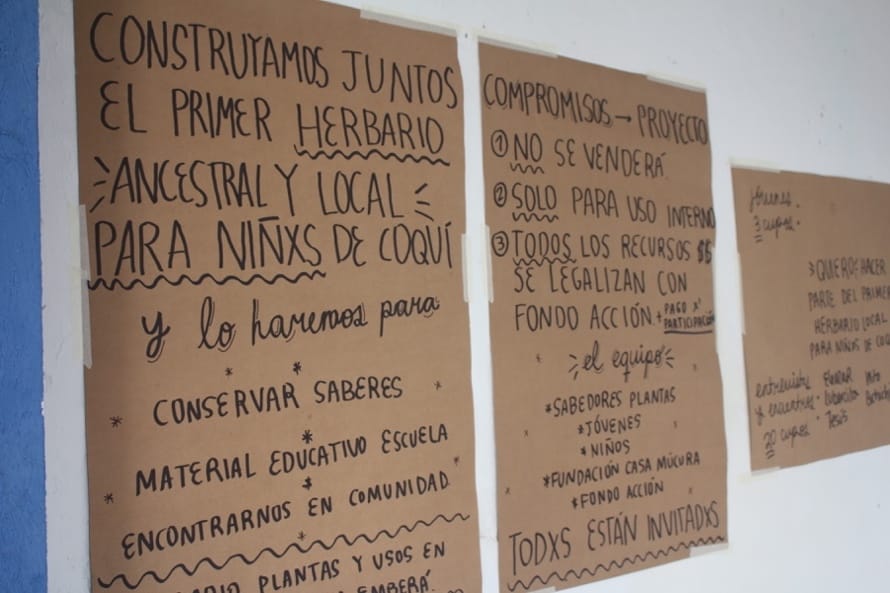 CONSTRUYAMOS JUNTOS
EL PRIMER HERBARIO
ANCESTRAL Y LOCAL
PARA NIÑXS DE COQUÍ
y lo haremos para
* CONSERVAR SABERES *
* MATERIAL EDUCATIVO ESCUELA *
* ENCONTRARNOS EN COMUNIDAD
PLANTAS Y USOS EN
EMBERÁ.
COMPROMISOS → PROYECTO
① NO SE VENDERÁ
② SOLO PARA USO INTERNO
③ TODOS LOS RECURSOS $$
SE LEGALIZAN CON
FONDO ACCIÓN + PAGO X'
PARTICIPACIÓN
el equipo
* SABEDORES PLANTAS
* JÓVENES
* NIÑOS
* FUNDACIÓN CASA MÚCURA
* FONDO ACCIÓN
TODXS ESTÁN INVITADXS
jóvenes.
3 cupos.
QUIERO HACER
PARTE DEL PRIMER
HERBARIO LOCAL
PARA NIÑOS DE COQ
entrevista
20 cupos
Jesús